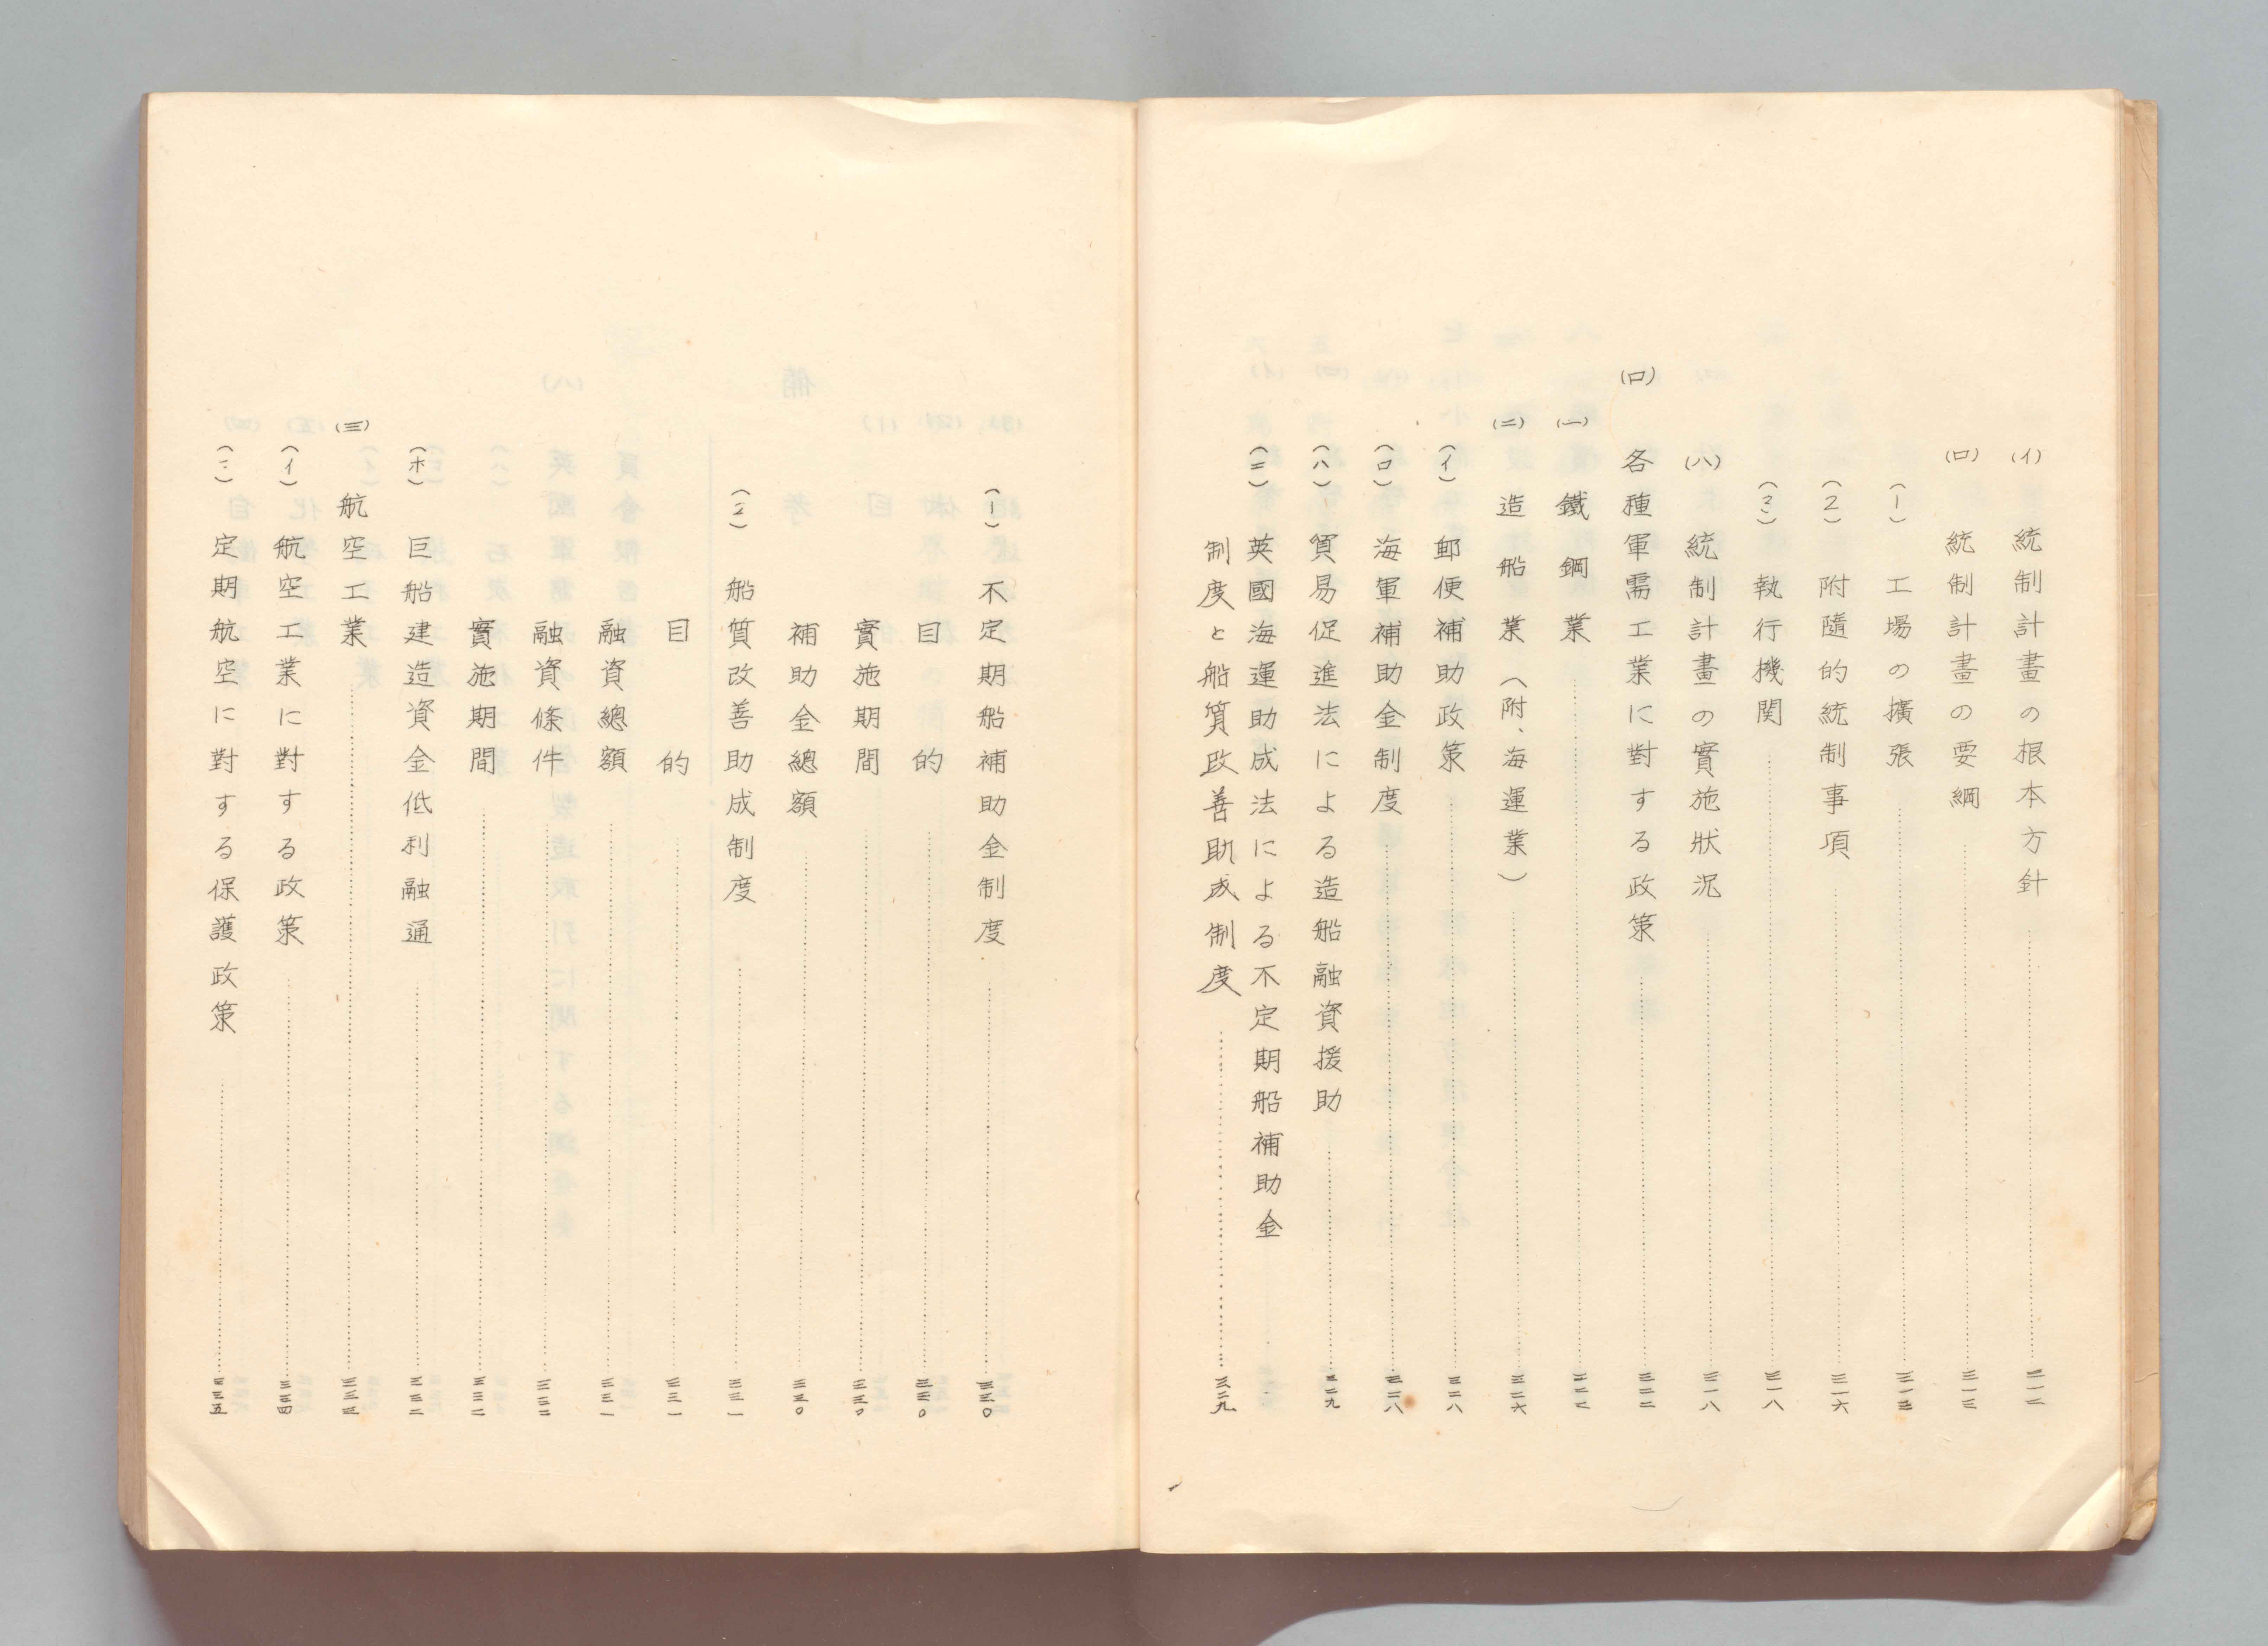 (イ) 統制計畫の根本方針……三一二
(ロ) 統制計畫の要綱……三一三
(1) 工場の擴張……三一三
(2) 附隨的統制事項……三一六
(3) 執行機関……三一八
(ハ) 統制計畫の實施狀況……三一八
(ロ) 各種軍需工業に對する政策……三二二
(一) 鐵鋼業……三二二
(二) 造船業(附、海運業)……三二六
(イ) 郵便補助政策……三二八
(ロ) 海軍補助金制度……三二八
(ハ) 貿易促進法による造船融資援助……三二九
(ニ) 英國海運助成法による不定期船補助金
制度と船質改善助成制度……三二九
(1) 不定期船補助金制度……三三〇
目的……三三〇
實施期間……三三〇
補助金總額……三三〇
(2) 船質改善助成制度……三三一
目的……三三一
融資總額……三三一
融資條件……三三二
實施期間……三三二
(ホ) 巨船建造資金低利融通……三三二
(三) 航空工業……三三三
(イ) 航空工業に對する政策……三三四
定期航空に對する保護政策……三三五